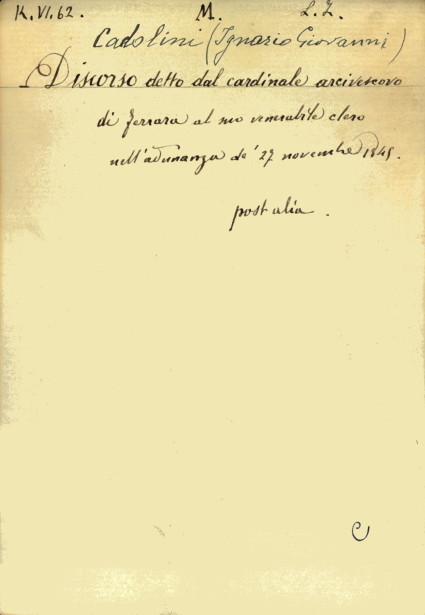 K.VI.62. M. L.Z.
Cadolini (Ignazio Giovanni)
Discorso detto dal cardinale arcivescovo
di Ferrara al suo venerabile clero
nell'adunanza de' 27 novembre 1845.
post alia.
C